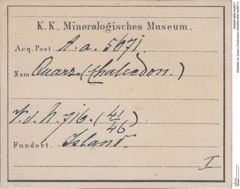 K. K. Mineralogisches Museum.
Acq. Post. A. a. 5671.
Nam Quarz. (Chalcedon.)
V. d. N. 716. (41/46)
Fundort. Island.
I